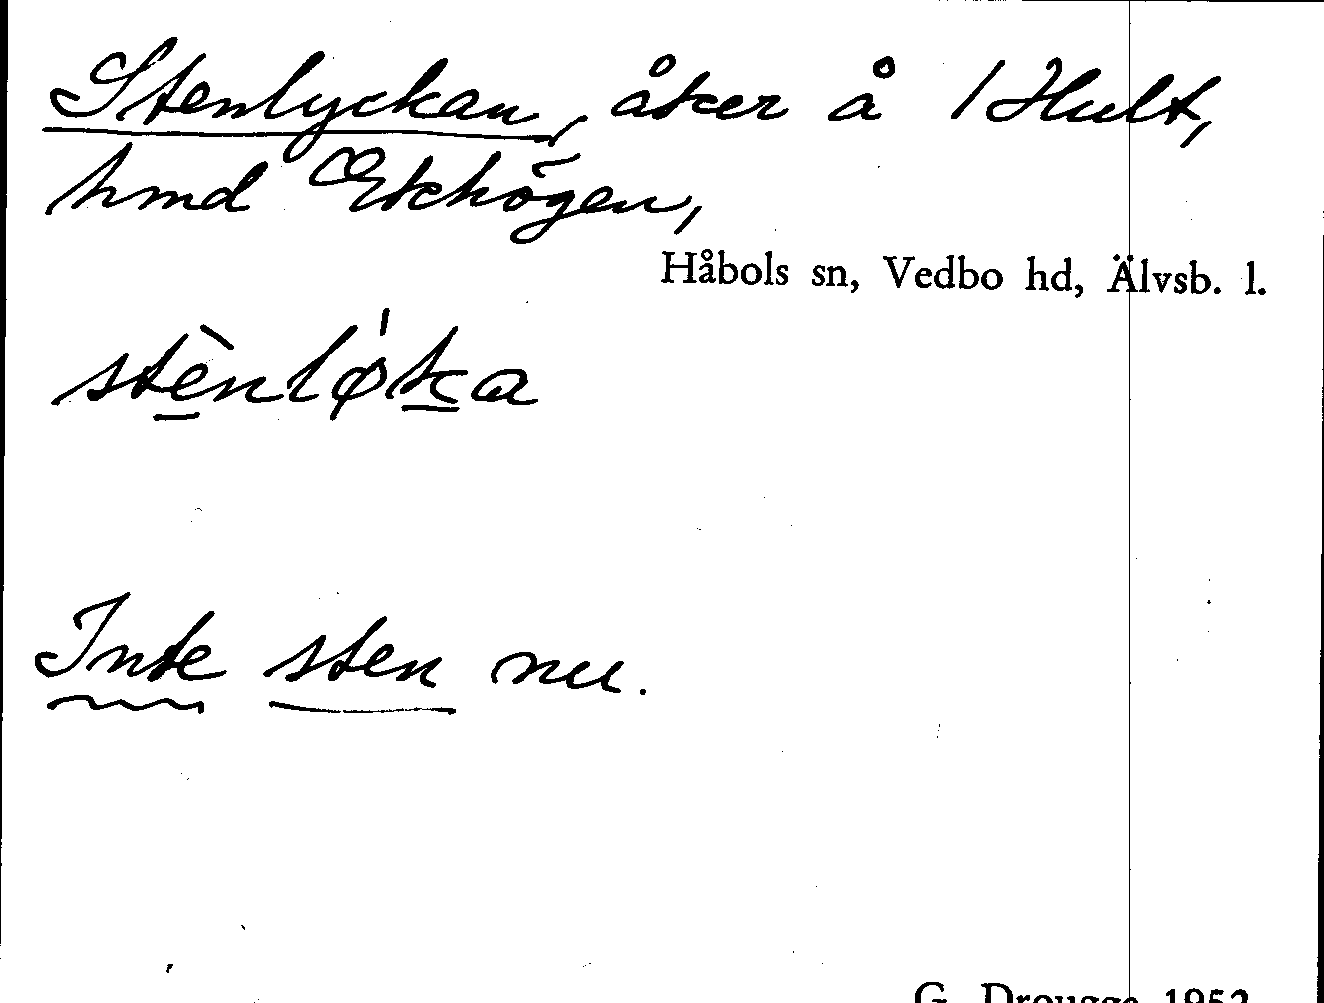 Stenlyckan, åker å 1 Hult,
hmd Ekhögen,
Håbols sn, Vedbo hd, Älvsb. l.
stènløka
Inte sten nu.
G. Drougge 1952